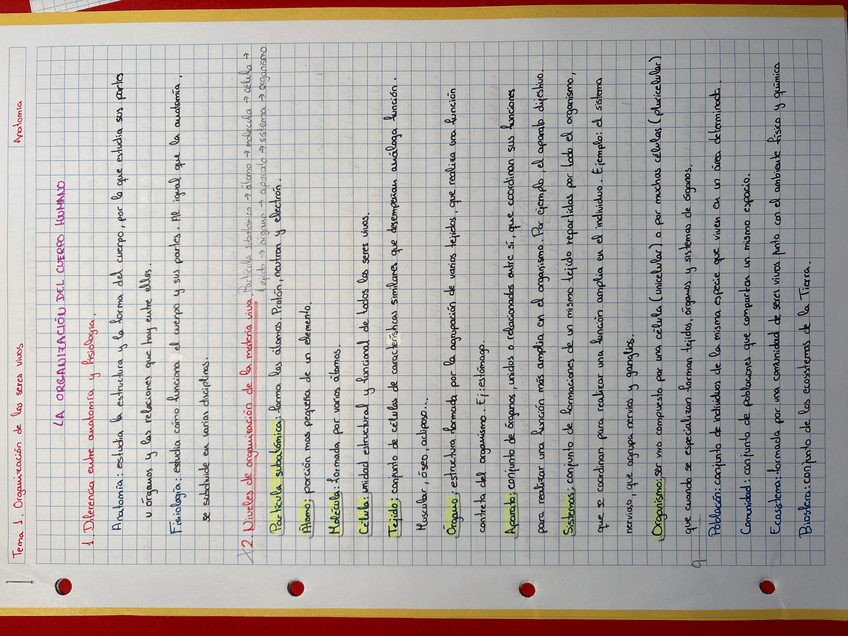 Tema 1. Organización de los seres vivos Anatomía
LA ORGANIZACIÓN DEL CUERPO HUMANO
1. Diferencia entre anatomía y fisiología.
Anatomía: estudia la estructura y la forma del cuerpo, por lo que estudia sus partes
u órganos y las relaciones que hay entre ellos.
Fisiología: estudia cómo funciona el cuerpo y sus partes. Al igual que la anatomía,
se subdivide en varias disciplinas.
2. Niveles de organización de la materia viva Partícula subatómica → átomo → molécula → célula →
tejido → órgano → aparato → sistema → organismo
Partícula subatómica: forma los átomos. Protón, neutron y electrón.
Átomo: porción mas pequeña de un elemento.
Molécula: formada por varios átomos.
Célula: unidad estructural y funcional de todos los seres vivos.
Tejido: conjunto de células de características similares que desempeñan análoga función.
Muscular, óseo, adiposo...
Órgano: estructura formada por la agrupación de varios tejidos, que realiza una función
concreta del organismo. Ej: estómago.
Aparato: conjunto de órganos, unidos o relacionados entre sí, que coordinan sus funciones
para realizar una función más amplia en el organismo. Por ejemplo, el aparato digestivo.
Sistemas: conjunto de formaciones de un mismo tejido repartidas por todo el organismo,
que se coordinan para realizar una función amplia en el individuo. Ejemplo: el sistema
nervioso, que agrupa nervios y ganglios.
Organismo: ser vivo compuesto por una célula (unicelular) o por muchas células (pluricelular)
que cuando se especializan forman tejidos, órganos y sistemas de órganos.
Población: conjunto de individuos de la misma especie que viven en un área determinada.
Comunidad: conjunto de poblaciones que comparten un mismo espacio.
Ecosistema: formada por una comunidad de seres vivos junto con el ambiente físico y química
Biosfera: conjunto de los ecosistemas de la Tierra.